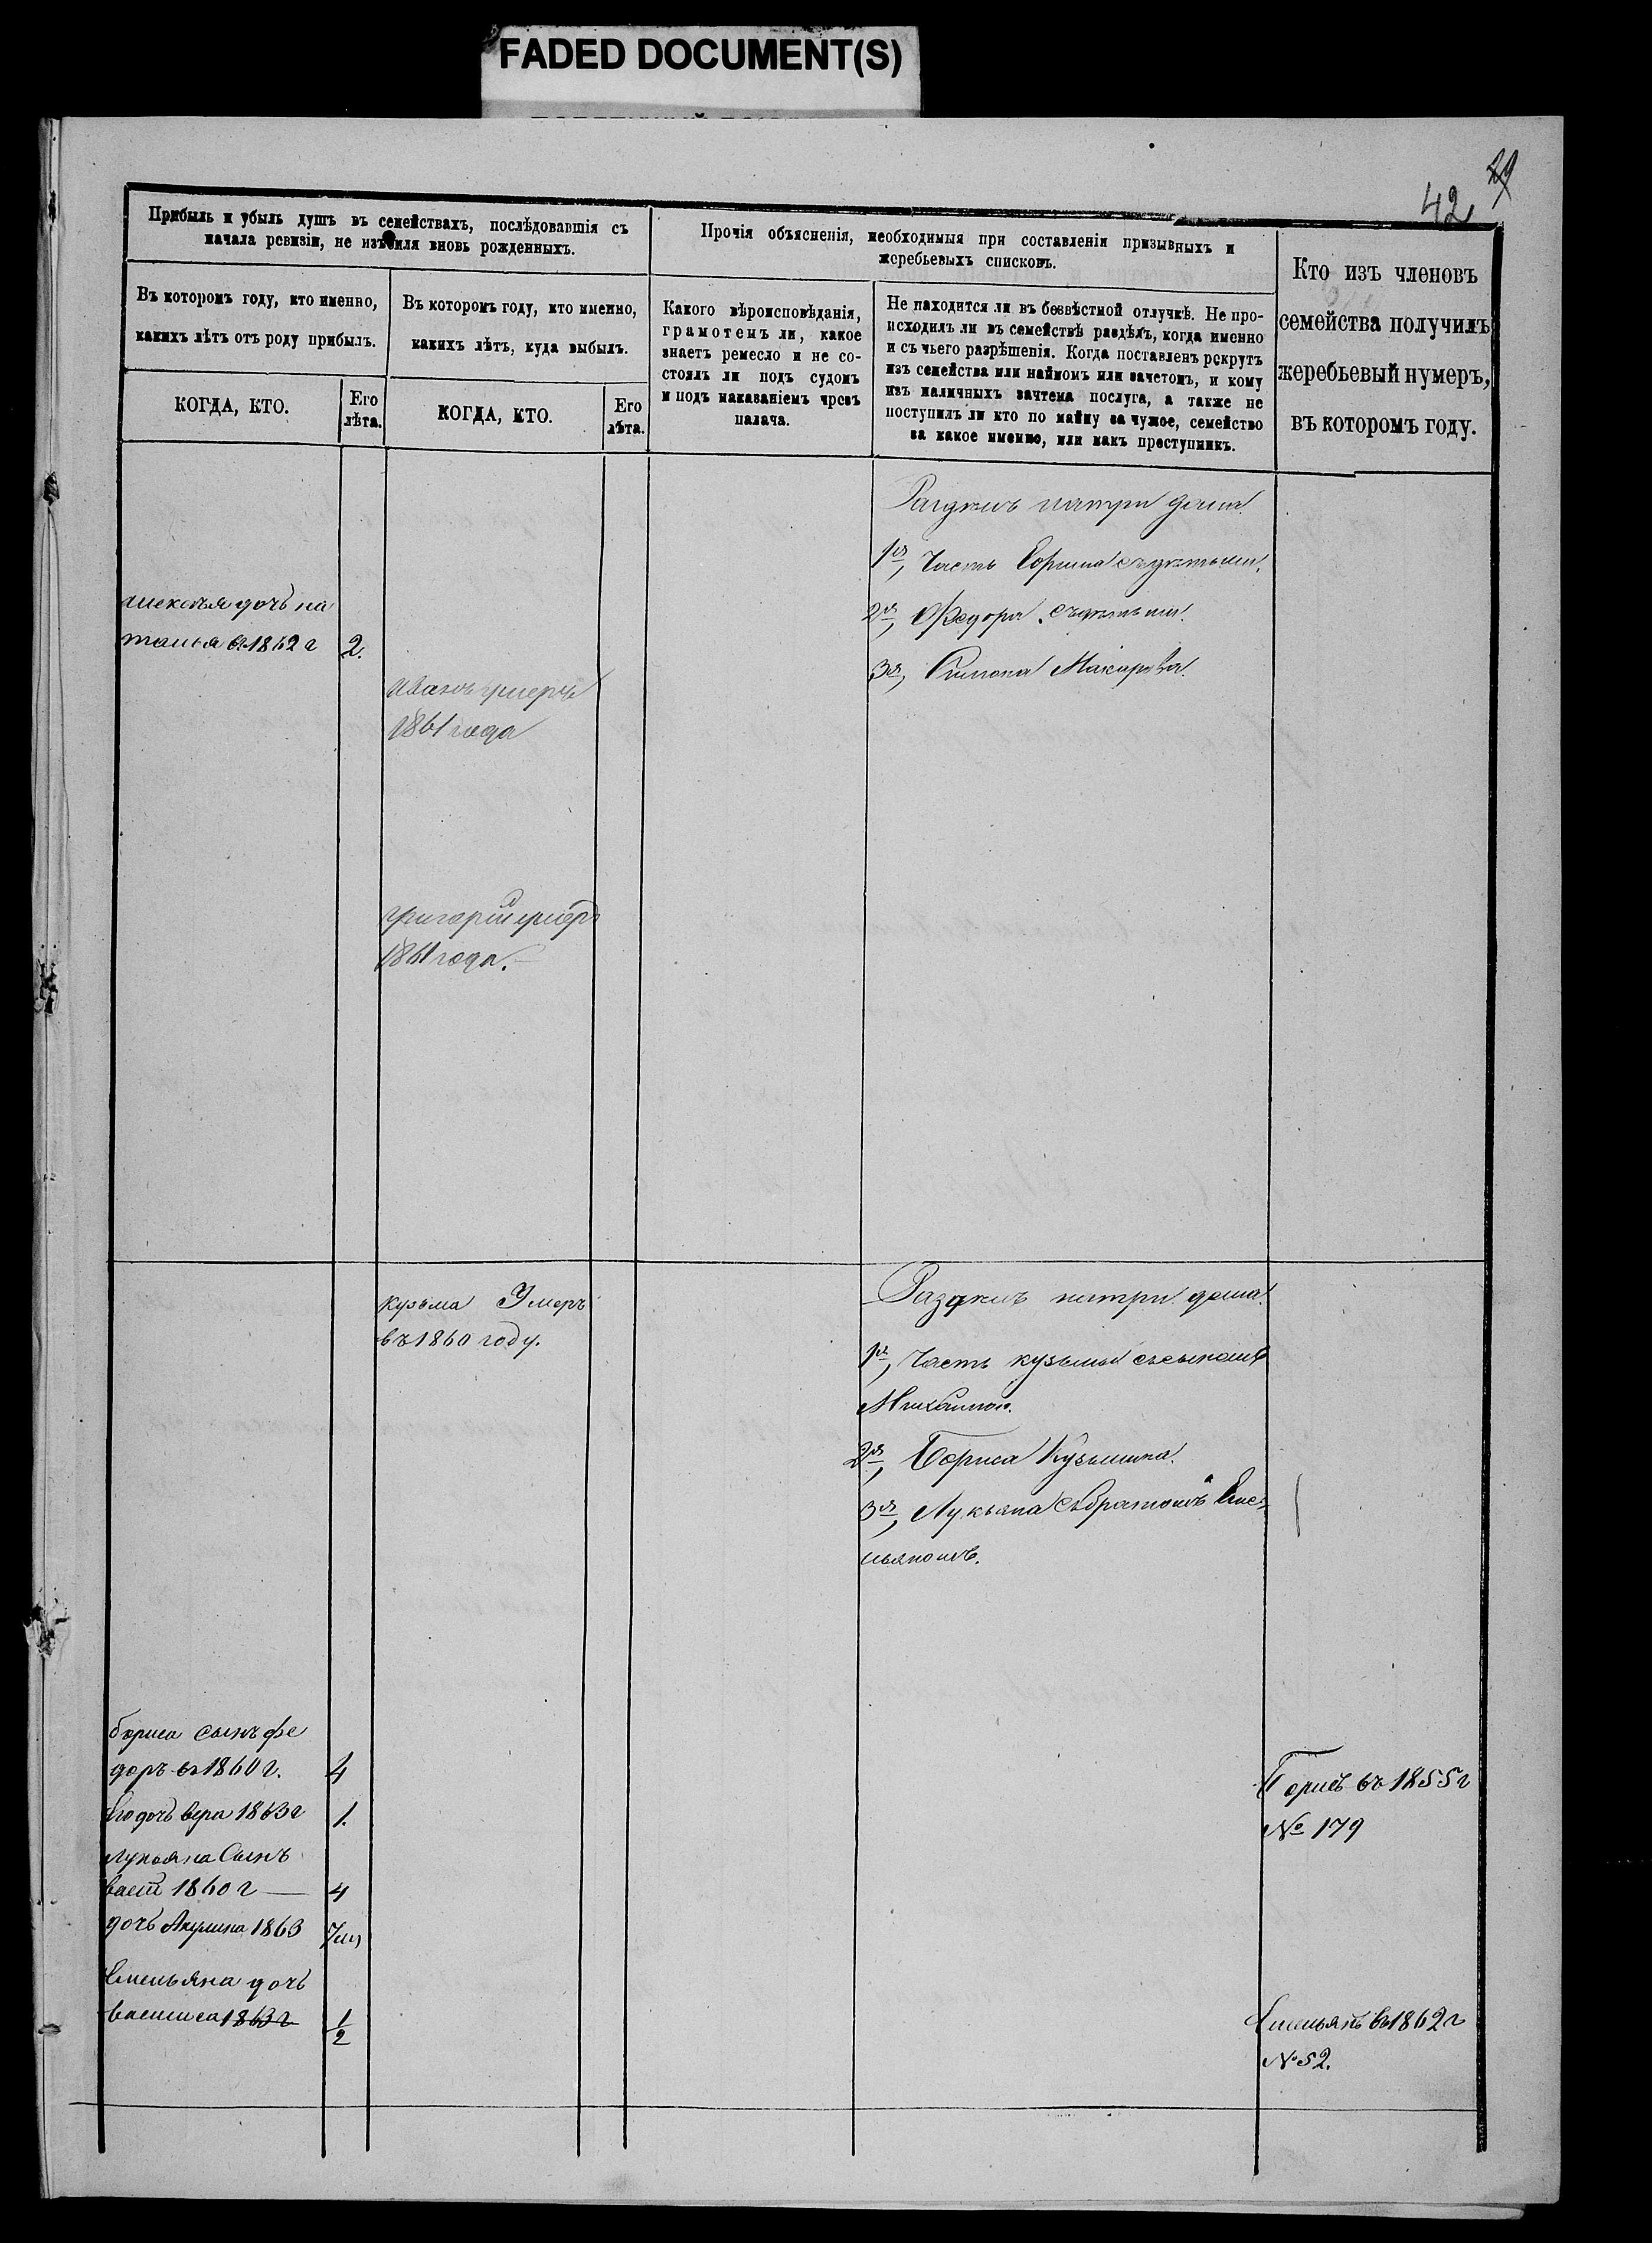 FADED DOCUMENT(S)
29
42
Прибыль и убыль душъ въ семействахъ, послѣдовавшія съ
начала ревизіи, не изъемля вновь рожденныхъ.
Въ которомъ году, кто именно,
какихъ лѣтъ отъ роду прибылъ.
КОГДА, КТО.
Его
лѣта.
Въ которомъ году, кто именно,
какихъ лѣтъ, куда выбылъ.
КОГДА, КТО.
Его
лѣта.
Прочія объясненія, необходимыя при составленіи призывныхъ и
жеребьевыхъ списковъ.
Какого вѣроисповѣданія,
грамотенъ ли, какое
знаетъ ремесло и не со-
стоялъ ли подъ судомъ
и подъ наказаніемъ чрезъ
палача.
Не находится ли въ безвѣстной отлучкѣ. Не про-
исходилъ ли въ семействѣ раздѣлъ, когда именно
и съ чьего разрѣшенія. Когда поставленъ рекрутъ
изъ семейства или наймомъ или зачетомъ, и кому
изъ наличныхъ зачтена послуга, а также не
поступилъ ли кто по найму за чужое, семейство
за какое именно, или какъ преступникъ.
Кто изъ членовъ
семейства получилъ
жеребьевый нумеръ,
въ которомъ году.
Раздѣлъ натри дома.
1я, Часть съдѣтьми.
2я, Федора съдѣтьми.
3я, Макарова.
алексѣя дочь на
талья въ 1862 г
2.
иванъ умеръ
1861 года
григорій умеръ
1861 года.
кузьма Умеръ
въ 1860 году.
Раздѣлъ натри дома.
1я, Часть кузьмы съсыномъ
Михаиломъ.
2я, Бориса Кузьмина.
3я, Лукьяна събратомъ Еме-
льяномъ.
бориса сынъ фе
доръ въ 1860 г.
4
Его дочь вера 1863 г
1.
лукьяна Сынъ
васил 1860 г
4
дочь Акулина 1863
7 м
Емельяна дочь
василиса 1863 г
1/2
Борисъ въ 1855 г
№ 179
Емельянъ въ 1862 г
№ 52.